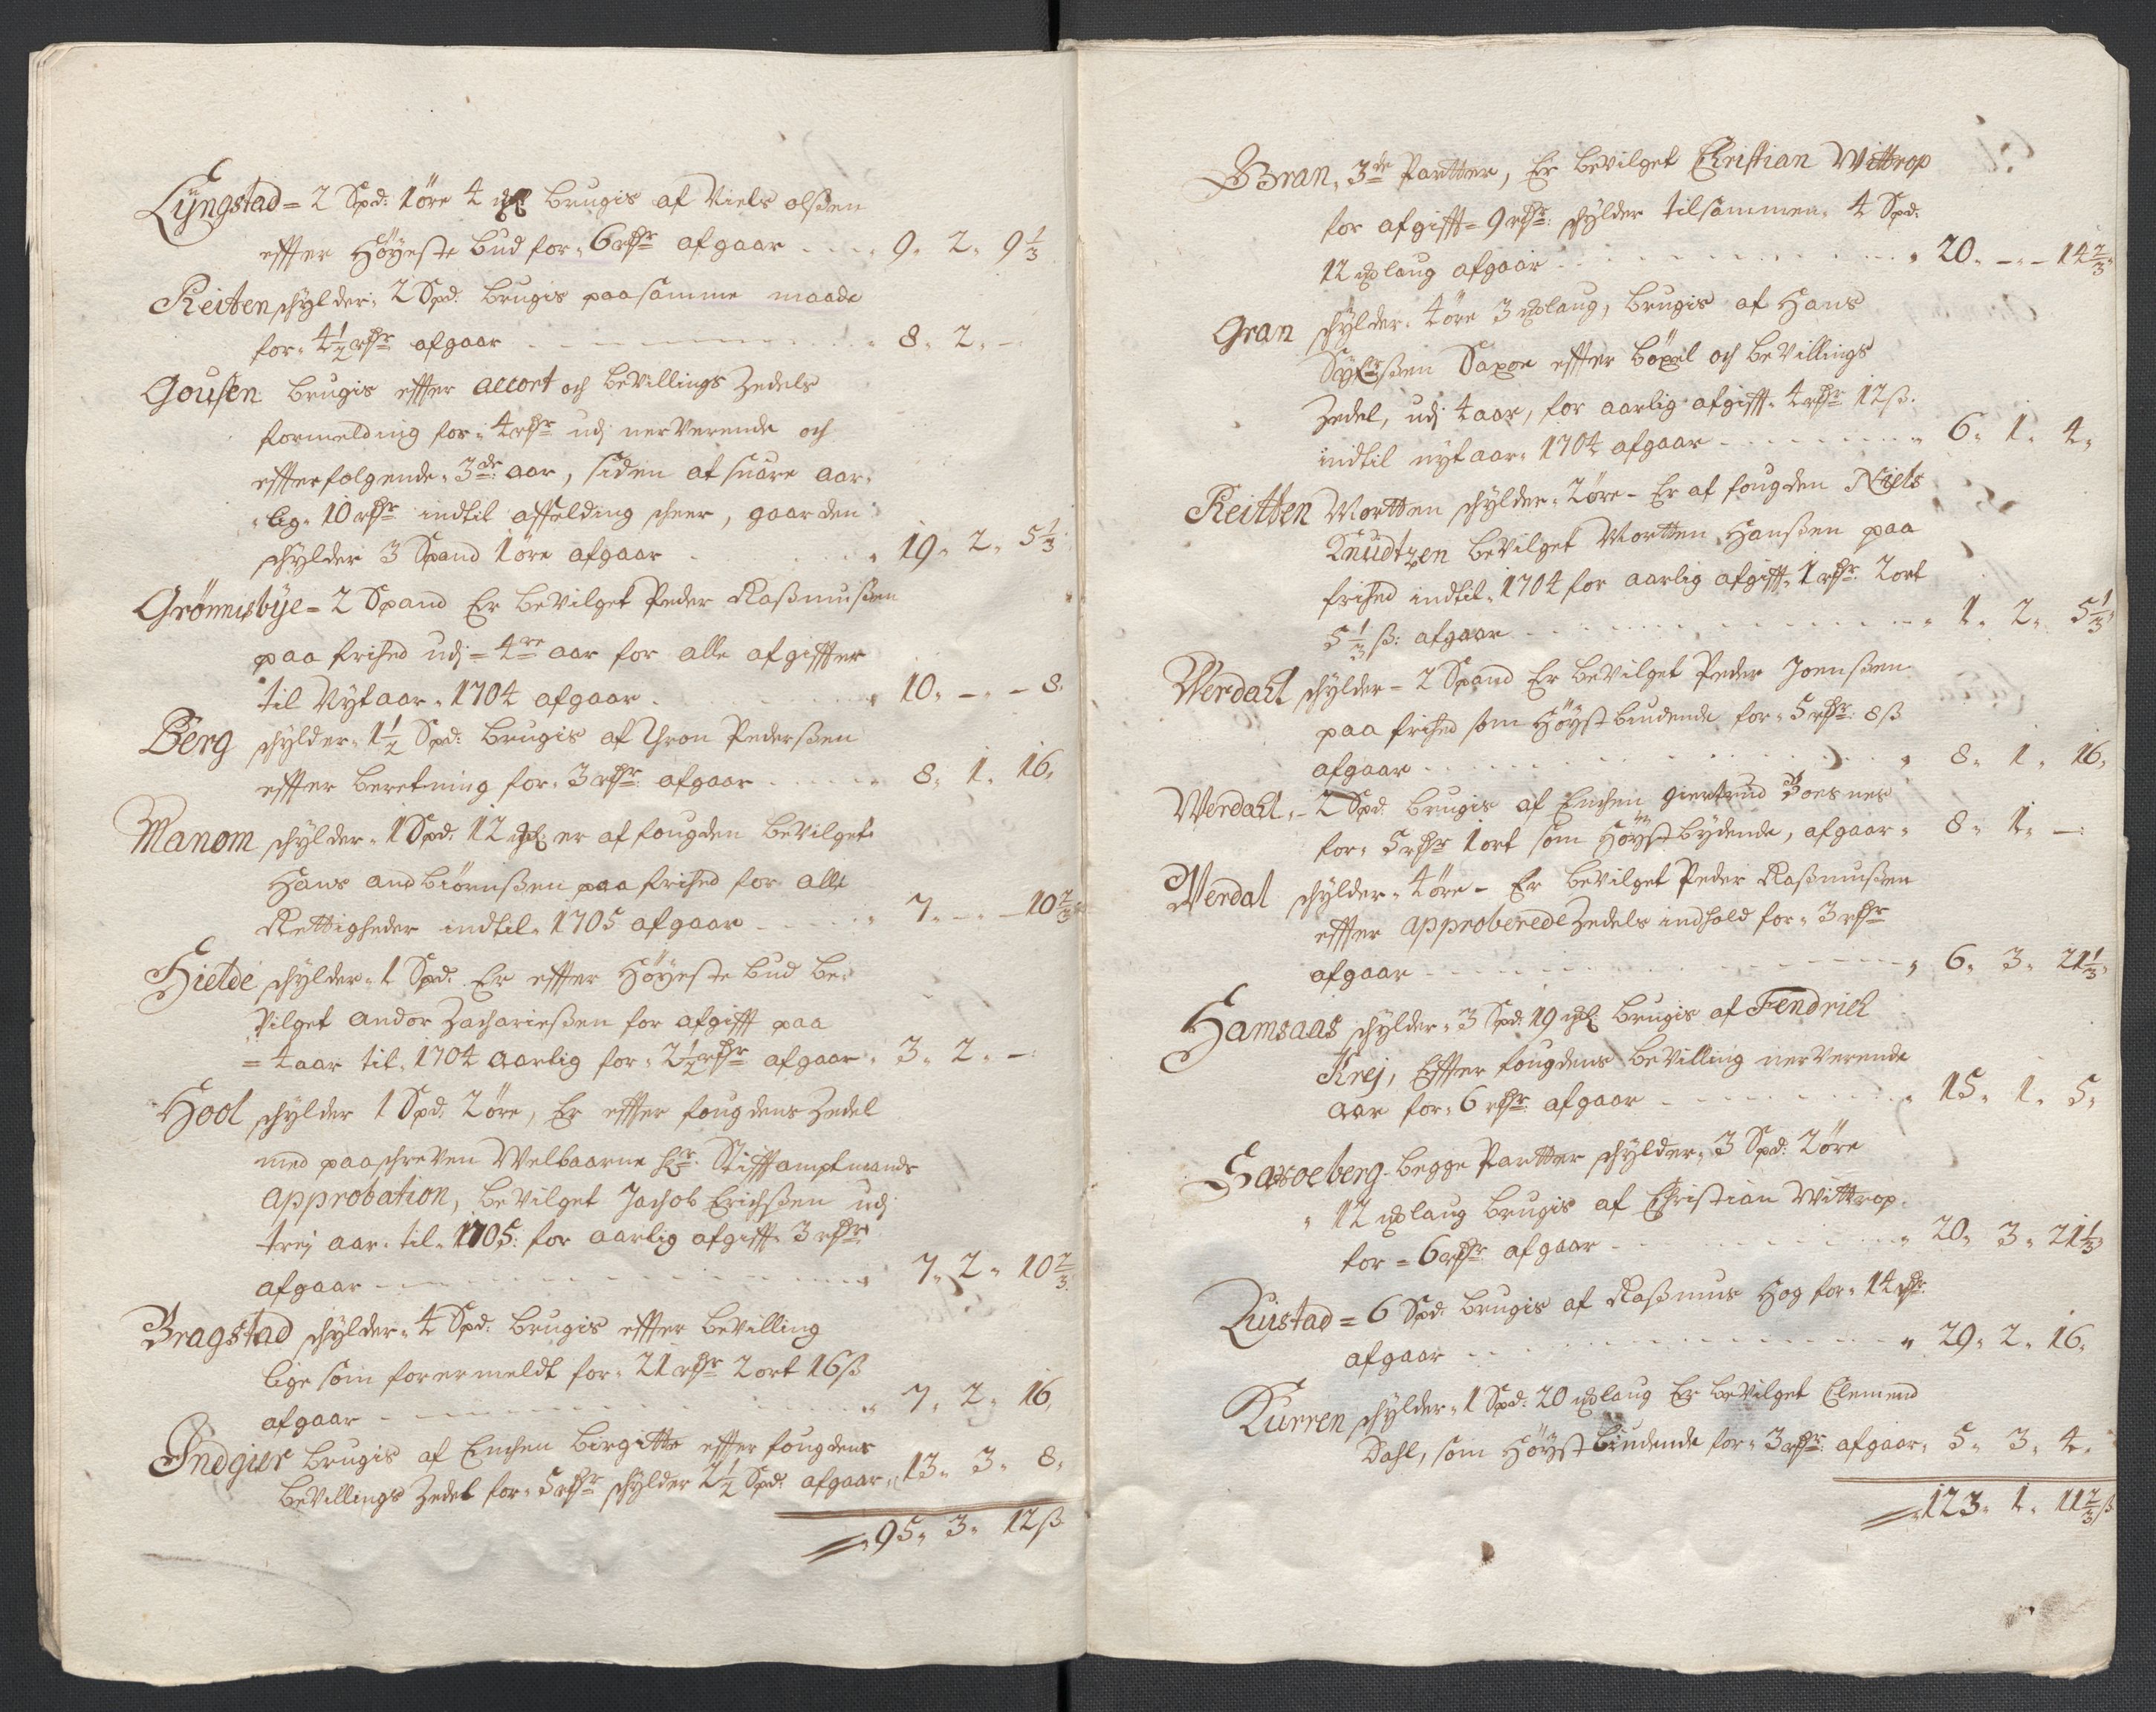 Lÿngstad = 2 Spd: 1 öre 4 mßl brugis af Niels olßen
effter Höyeste bud for „ 6 rdr afgaar „ 9 „ 2 „ 9 1/3
Reitten schylder „ 2 Spd: brugis paa samme maade
for „ 4 1/2 rdr afgaar „ 8 „ 2 „ –
Gousen brugis effter accort och bevillings Zedels
formelding for „ 4 rdr udj nerverende och
effterfolgende „ 3de aar, siden at suare aar„
„lig „ 10 rdr indtil affelding scheer, gaarden
schylder 3 Spand 1 öre afgaar „ 19 „ 2 „ 5 1/3
Grönnisbÿe = 2 Spand Er bevilget Peder Raßmußen
paa frihed udj = 4re aar for alle afgiffter
til Nytaar „ 1704 afgaar „ 10 „ – „ – 8
Berg schylder „ 1 1/2 Spd: brugis af Thron Pederßen
effter beretning for „ 3 rdr afgaar „ 8 „ 1 „ 16„
Manom schylder „ 1 Spd. 12 mßl er af fougden bevilget
Hans andbiörnßen paa frihed for alle
Rettigheder indtil „ 1705 afgaar „ 7 „ – „ – 10 2/3
Hielde schylder „ 1 Spd. Er effter Höyeste bud be„
vilget andor Zacharießen for afgifft paa
= 4 aar til „ 1704 aarlig for „ 2 1/2 rdr afgaar „ 3 „ 2 „ –
Hool schylder 1 Spd. 2 öre, Er effter fougdens Zedel
med paaschreven Welbaarne hr. Stifftamptmands
approbation, bevilget Jachob Erichßen udj
trej aar „ til „ 1705: for aarlig afgifft „ 3 rdr
afgaar „ 7 „ 2 „ 10 2/3
Bragstad schylder „ 4 Spd: brugis effter bevilling
lige som forermeldt for „ 21 rdr 2 ort 16 ß
afgaar „ 7 „ 2 „ 16„
Indgier brugis af Enchen birgitte effter fougdens
bevillings Zedel for „ 5 rdr schylder 2 1/2 Spd: afgaar „ 13 „ 3 „ 8„
„ 95 „ 3 „ 12 ß
Bran, 3de Partter, Er bevilget Christian Wittrop
for afgifft = 9 rdr: schylder tilsammen „ 4 Spd:
12 mßlaug afgaar „ 20 „ – „ – 14 2/3
Gran schylder „ 4 öre 3 mßlaug, brugis af Hans
Saxoe effter böxel och bevillings
Zedel, udj 4 aar, for aarlig afgifft „ 4 rdr 12 ß.
indtil nytaar „ 1704 afgaar „ 6 „ 1 „ 4„
Reitten Mortten schylder „ 2 öre – Er af fougden Niels
Knudtzen bevilget Mortten Hanßen paa
frihed indtil „ 1704 for aarlig afgifft „ 1 rdr: 2 ort
5 1/3 ß: afgaar „ 1 „ 2 „ 5 1/3
Werdall schylder = 2 Spand Er bevilget Peder Joenßen
paa frihed som Höystbiudende for „ 5 rdr: 8 ß
afgaar „ 8 „ 1 „ 16„
Werdall, – 2 Spd. brugis af Enchen giertrud Boesnes
for „ 5 rdr 1 ort som Höystbydende, afgaar „ 8 „ 1 „ –:
Werdal schylder „ 4 öre – Er bevilget Peder Raßmußen
effter approberede Zedels indhold for „ 3 rdr
afgaar „ 6 „ 3 „ 21 1/3
Hamsaas schylder „ 3 Spd: 19 mßl brugis af Fendrich
Krej, Effter fougdens bevilling nerverende
aar for „ 6 rdr: afgaar „ 15 „ 1 „ 5„
Saxoeberg begge Partter schylder „ 3 Spd: 2 öre
„ 12 mßlaug brugis af Christian Wittrop
for = 6 rdr afgaar „ 20 „ 3 „ 21 1/3
Luistad = 6 Spd: brugis af Raßmus Hog for „ 14 rdr
afgaar „ 29 „ 2 „ 16„
Kurren schylder „ 1 Spd: 20 mßlaug Er bevilget Clemend
Dahl, som Höystbiudende for „ 3 rdr: afgaar „ 5 „ 3 „ 4„
„ 123 „ 1 „ 11 2/3 ß